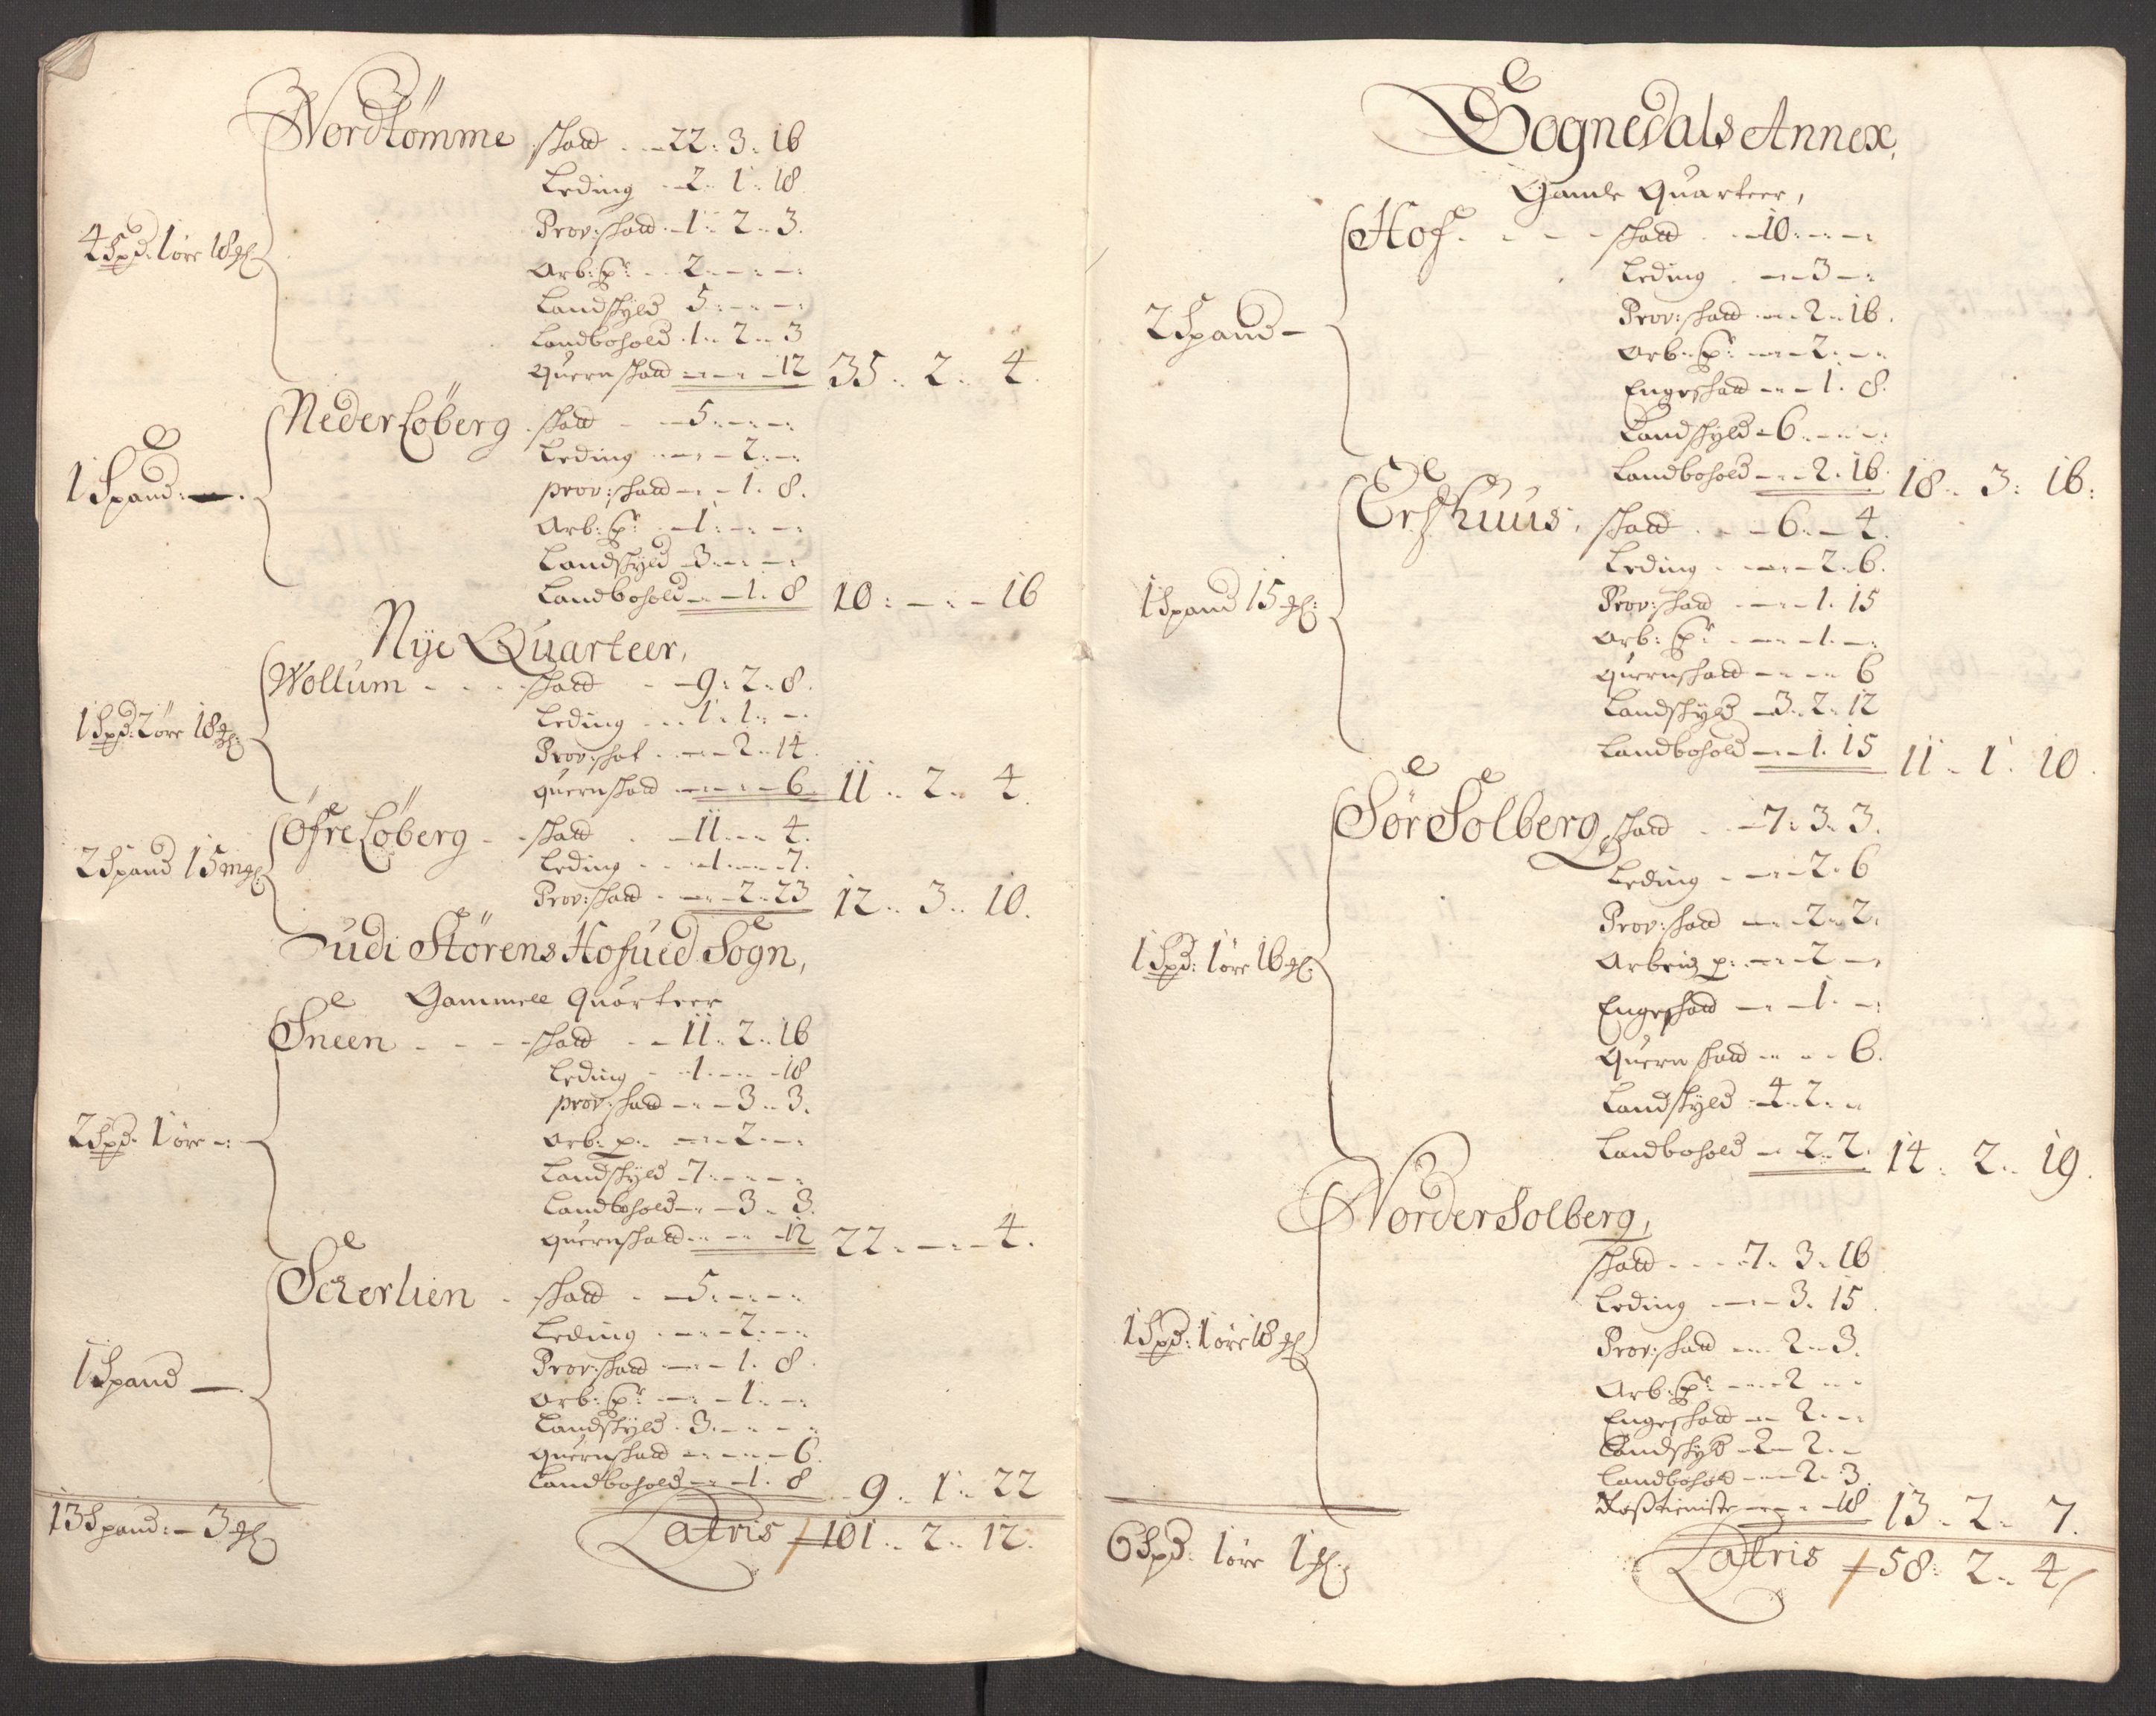 Nordtömme skatt . . – 22 : 3 . 16
Leding . – 2 . 1 . 18
Prov: skatt . – 1 . 2 . 3.
4 Spd: 1 öre 18 mkl:
Arb: p: . . 2 . – . –
Landskyld 5 . – . –
Landbohold . 1 . 2 . 3
Quernskatt – . – . – 12 35 . 2 . 4.
Neder Löberg . skatt . – 5 . – . –
Leding . – . – 2 . –
1 Spand: – .
prov: skatt – . – 1 . 8.
Arb: p: . – 1 . – . –
Landskyld – 3 . – . –
Landbohold – . – 1 . 8 10 : – . – 16
Nÿe Quarteer,
Wollum - . . . skatt . – 9 : 2 . 8.
1 Spd: 2 öre 18 mkl:
Leding . . . 1 . 1 . –
Prov: skat . – . – 2 . 14.
quernskatt – . – . – 6. 11 . 2 . 4.
Öfre Löberg - . skatt . – 11 . – . 4.
2 Spand 15 mkl:
Leding . . . – 1 . – . 7.
Prov: skatt . – . – 2 . 23 12 . 3 . 10.
udi Störens Hofued Sogn,
Gammell Quarteer
Sneen - . - . - skatt . . – 11 . 2 . 16
Leding . – 1 . – . – 18
prov: skatt – . – 3 . 3.
2 Spd: 1 öre – :
Arb: p: . – . – 2 . – .
Landskyld – 7 . – . –
Landbohold – . – 3 . 3.
quernskatt – . – . – 12 22 . – . – 4.
Scherlien . skatt . – 5 . – . –
Leding . – . – 2 . – .
Prov: skatt . – . – 1 . 8.
1 Spand – .
Arb: p: – . – 1 . – .
Landskyld . 3 . – . –
quernskatt – . – . – 6.
Landbohold – . – 1 . 8 9 . 1 . 22
13 Spand: – 3 mkl:
Latris 101 . 2 . 12.
Sognedals Annex,
Gamle Quarteer,
Hof . . - . - skatt . . – 10 . – . –
Leding . – . – 3 – .
Prov: skatt . – . – 2 . 16.
2 Spand –
Arb: p: – . – 2 . – .
Engeskatt – . – 1 . 8.
Landskyld – 6 . – . –
Landbohold – . – 2 . 16. 18 . 3 : 16 :
Ershuus, skatt . – . – 6 . – 4.
Leding . – . – 2 . 6.
1 Spand 15 mkl:
Prov: skatt . – . – 1 . 15
Arb: p: . – . – 1 . – .
quernskatt – . – . – 6
Landskyld – 3 . 2 . 12
Landbohold – . – 1 . 15 11 . 1 . 10.
Sör Solberg skatt . . – 7 : 3 . 3.
Leding . – . – 2 . 6
Prov: skatt – . – 2 . 2.
1 Spd: 1 öre 16 mkl:
Arbeidz p: . – . – 2 . – .
Engeskatt – . – 1 . – .
Quern skatt – . – . 6.
Landskyld – 4 . 2 . –
Landbohold – . – 2 . 2. 14 . 2 . 19.
Norder Solberg,
skatt . . . – 7 . 3 . 16
Leding . – . – 3 . 15.
1 Spd: 1 öre 18 mkl:
Prov: skatt – . – 2 . 3.
Arb: p: – . – 2 – . –
Engeskatt – . – 2 . – .
Landskyld – 2 – 2 . –
Landbohold – . – 2 . 3.
Rostieniste – . – . – 18 13 . 2 . 7.
6 Spd: 1 öre 1 mkl:
Latris 58 : 2 . 4